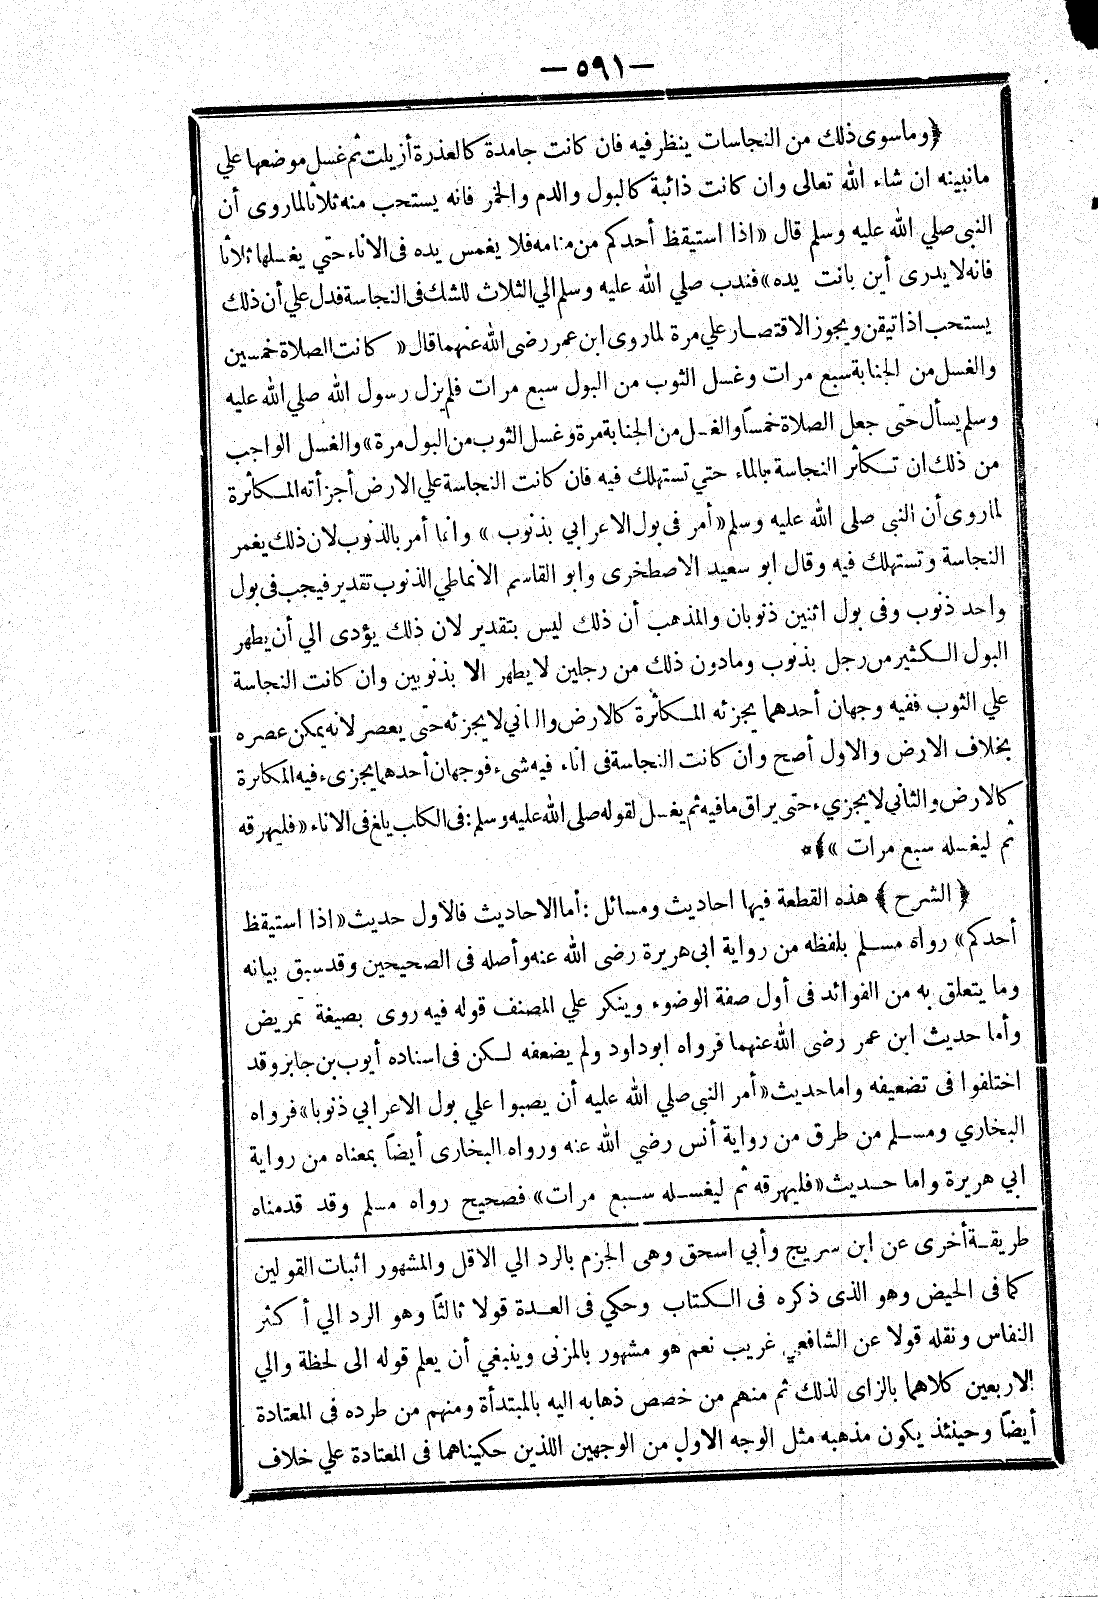 — ٥٩١ —
﴿ وماسوى ذلك من النجاسات ينظر فيه فان كانت جامدة كالعذرة أزيلت ثم غسل موضعها علي
مانبينه ان شاء الله تعالى وان كانت ذائبة كالبول والدم والخمر فانه يستحب منه ثلاثا لما روى أن
النبى صلي الله عليه وسلم قال « اذا استيقظ أحدكم من منامه فلا يغمس يده فى الاناء حتي يغسلها ثلاثا
فانه لا يدرى أين باتت يده » فندب صلي الله عليه وسلم الي الثلاث للشك فى النجاسة فدل علي أن ذلك
يستحب اذا تيقن ويجوز الاقتصار علي مرة لما روى ابن عمر رضى الله عنهما قال « كانت الصلاة خمسين
والغسل من الجنابة سبع مرات وغسل الثوب من البول سبع مرات فلم يزل رسول الله صلي الله عليه
وسلم يسأل حتى جعل الصلاة خمساً والغسل من الجنابة مرة وغسل الثوب من البول مرة » والغسل الواجب
من ذلك ان تكاثر النجاسة بالماء حتي تستهلك فيه فان كانت النجاسة علي الارض أجزأته المكاثرة
لما روى أن النبى صلى الله عليه وسلم « أمر فى بول الاعرابي بذنوب » وانما أمر بالذنوب لان ذلك يغمر
النجاسة وتستهلك فيه وقال ابو سعيد الاصطخرى وابو القاسم الانماطي الذنوب تقدير فيجب فى بول
واحد ذنوب وفى بول اثنين ذنوبان والمذهب أن ذلك ليس بتقدير لان ذلك يؤدى الي أن يطهر
البول الكثير من رجل بذنوب ومادون ذلك من رجلين لا يطهر الا بذنوبين وان كانت النجاسة
علي الثوب ففيه وجهان أحدهما يجزئه المكاثرة كالارض والثاني لا يجزئه حتى يعصر لانه يمكن عصره
بخلاف الارض والاول أصح وان كانت النجاسة فى اناء فيه شىء فوجهان أحدهما يجزىء فيه المكاثرة
كالارض والثاني لا يجزيء حتى يراق مافيه ثم يغسل لقوله صلى الله عليه وسلم : فى الكلب يلغ فى الاناء « فليهرقه
ثم ليغسله سبع مرات » ﴾*
﴿ الشرح ﴾ هذه القطعة فيها احاديث ومسائل : أما الاحاديث فالاول حديث « اذا استيقظ
أحدكم » رواه مسلم بلفظه من رواية ابى هريرة رضى الله عنه وأصله فى الصحيحين وقد سبق بيانه
وما يتعلق به من الفوائد فى أول صفة الوضوء وينكر علي المصنف قوله فيه روى بصيغة تمريض
وأما حديث ابن عمر رضى الله عنهما فرواه ابو داود ولم يضعفه لكن فى اسناده أيوب بن جابر وقد
اختلفوا فى تضعيفه واما حديث « أمر النبى صلي الله عليه أن يصبوا علي بول الاعرابي ذنوبا » فرواه
البخاري ومسلم من طرق من رواية أنس رضي الله عنه ورواه البخارى أيضاً بمعناه من رواية
ابي هريرة واما حديث « فليهرقه ثم ليغسله سبع مرات » فصحيح رواه مسلم وقد قدمناه
طريقة أخرى عن ابن سريج وأبي اسحق وهى الجزم بالرد الي الاقل والمشهور اثبات القولين
كما فى الحيض وهو الذى ذكره فى الكتاب وحكي فى العدة قولا ثالثاً وهو الرد الي أكثر
النفاس ونقله قولا عن الشافعي غريب نعم هو مشهور بالمزنى وينبغي أن يعلم قوله الى لحظة والي
الاربعين كلاهما بالزاى لذلك ثم منهم من خصص ذهابه اليه بالمبتدأة ومنهم من طرده فى المعتادة
أيضاً وحينئذ يكون مذهبه مثل الوجه الاول من الوجهين اللذين حكيناهما فى المعتادة علي خلاف